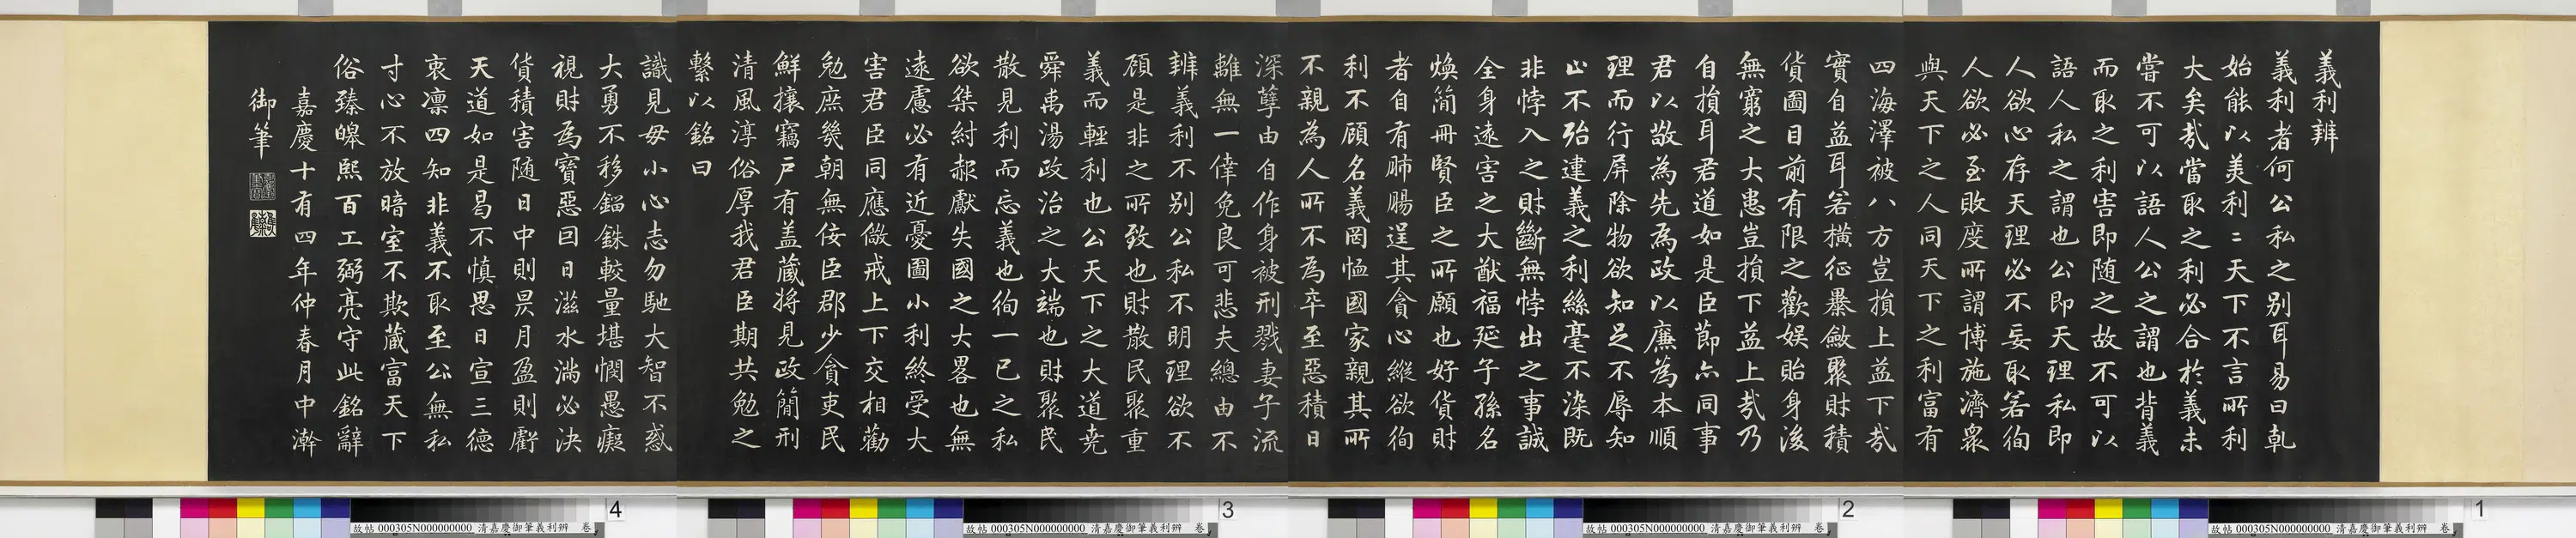 義利辨
義利者何公私之别耳易曰乹
始能以美利〻天下不言所利
大矣哉當取之利必合於義未
嘗不可以語人公之謂也背義
而取之利害即随之故不可以
語人私之謂也公即天理私即
人欲心存天理必不妄取若徇
人欲必至敗度所謂博施濟衆
與天下之人同天下之利富有
四海澤被八方豈損上益下哉
實自益耳若横征暴斂聚財積
貨圖目前有限之歡娱貽身後
無窮之大患豈損下益上哉乃
自損耳君道如是臣節亦同事
君以敬為先為政以廉為本順
理而行屏除物欲知足不辱知
止不殆違義之利絲毫不染既
非悖入之財斷無悖出之事誠
全身遠害之大猷福延子孫名
煥簡冊賢臣之所願也好貨財
者自有肺腸逞其貪心縱欲徇
利不顧名義罔恤國家親其所
不親為人所不為卒至惡積日
深孽由自作身被刑戮妻子流
離無一倖免良可悲夫總由不
辨義利不别公私不明理欲不
顧是非之所致也財散民聚重
義而輕利也公天下之大道堯
舜禹湯政治之大端也財聚民
散見利而忘義也徇一已之私
欲桀紂赧獻失國之大畧也無
遠慮必有近憂圖小利終受大
害君臣同應儆戒上下交相勸
勉庶幾朝無佞臣郡少貪吏民
鮮攘竊戶有盖藏將見政簡刑
清風淳俗厚我君臣期共勉之
繫以銘曰
識見毋小心志勿馳大智不惑
大勇不移錙銖較量堪憫愚癡
視財為寶惡囙日滋水滿必決
貨積害随日中則昃月盈則虧
天道如是曷不慎思日宣三德
衷凛四知非義不取至公無私
寸心不放暗室不欺藏富天下
俗臻皞熙百工弼亮守此銘辭
嘉慶十有四年仲春月中澣
御筆
4
3
2
1
故帖 000305N000000000 清嘉慶御筆義利辨 卷
故帖 000305N000000000 清嘉慶御筆義利辨 卷
故帖 000305N000000000 清嘉慶御筆義利辨 卷
故帖 000305N000000000 清嘉慶御筆義利辨 卷